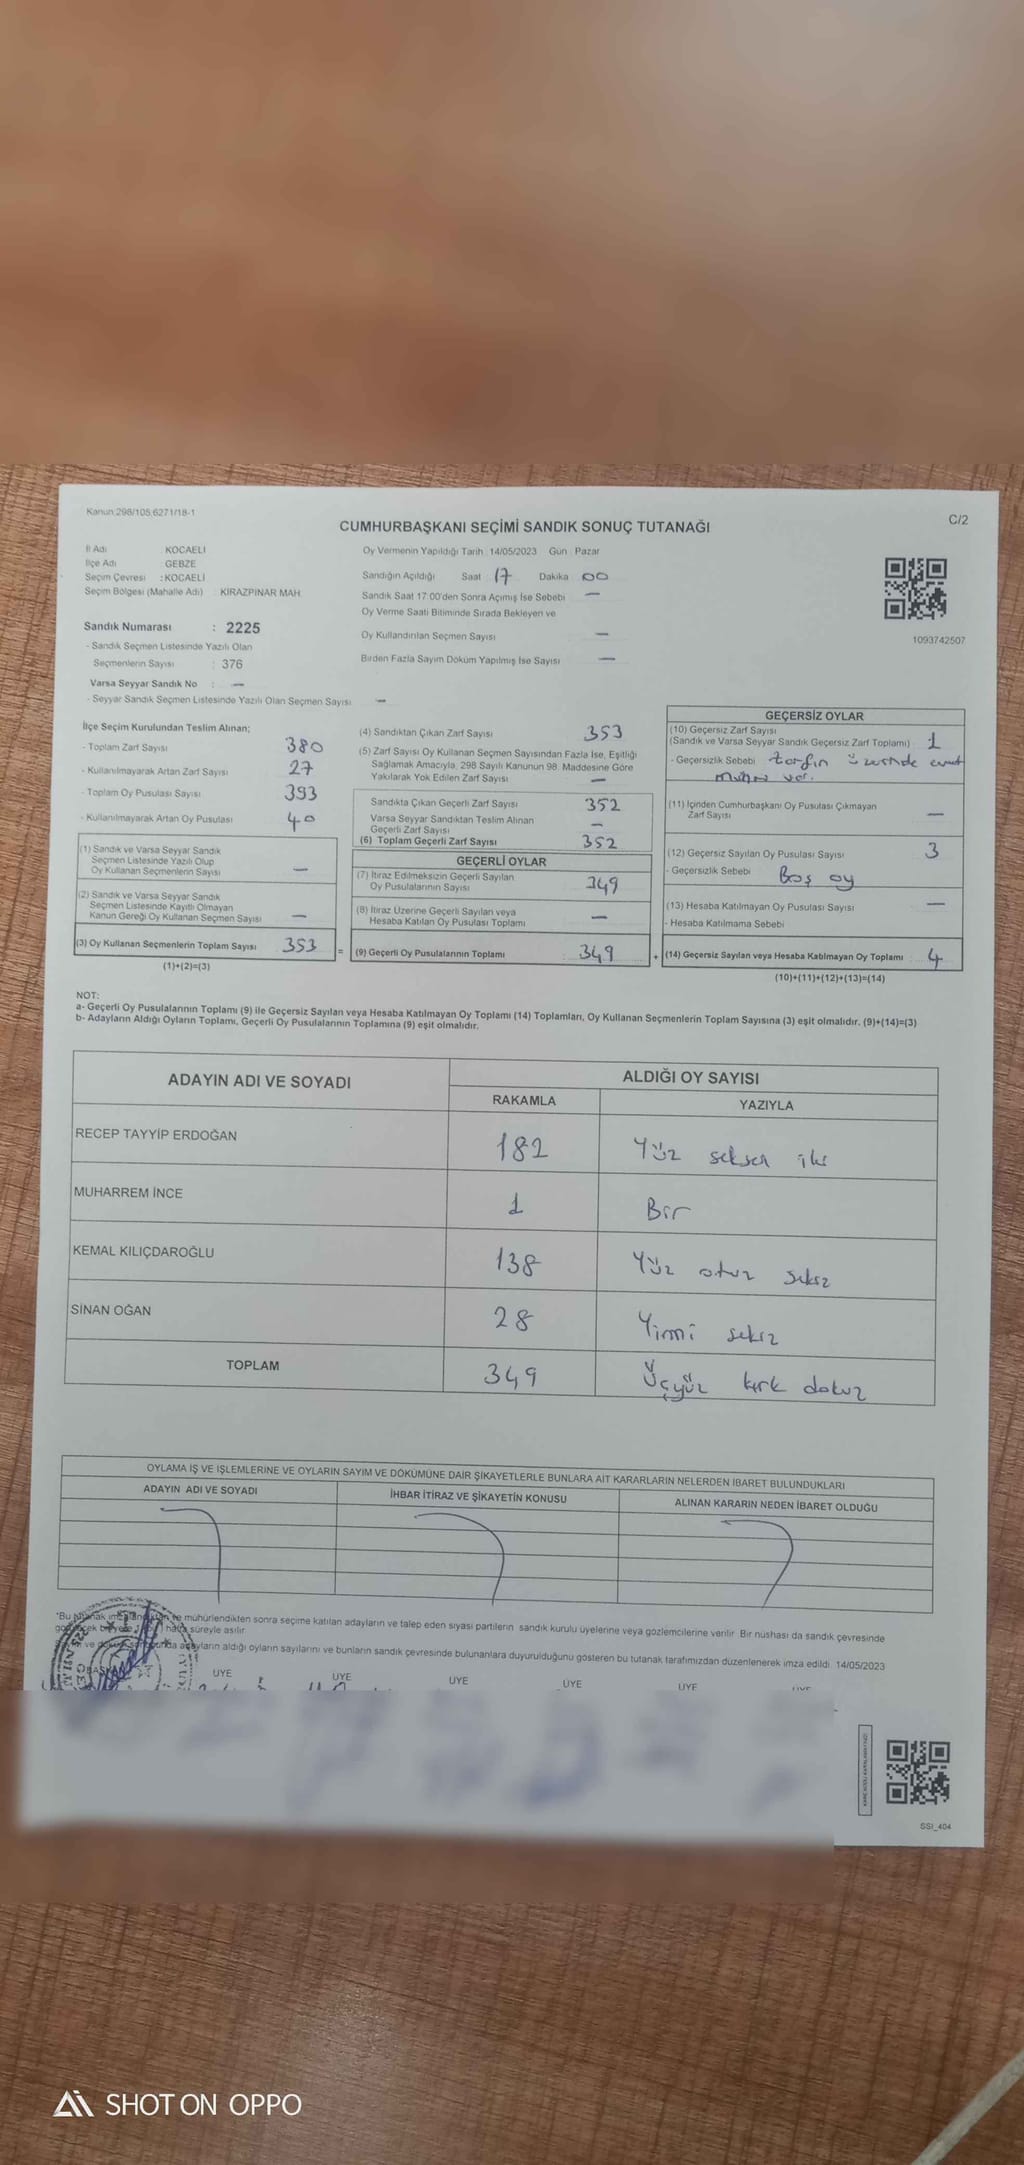 Kanun:298/105,6271/18-1
C/2
CUMHURBAŞKANI SEÇİMİ SANDIK SONUÇ TUTANAĞI
İl Adı KOCAELİ
İlçe Adı GEBZE
Seçim Çevresi : KOCAELİ
Seçim Bölgesi (Mahalle Adı) : KIRAZPINAR MAH.
Sandık Numarası : 2225
- Sandık Seçmen Listesinde Yazılı Olan
Seçmenlerin Sayısı : 376
Varsa Seyyar Sandık No : —
- Seyyar Sandık Seçmen Listesinde Yazılı Olan Seçmen Sayısı —
Oy Vermenin Yapıldığı Tarih : 14/05/2023 Gün : Pazar
Sandığın Açıldığı Saat 17 Dakika 00
Sandık Saat 17:00'den Sonra Açımış İse Sebebi —
Oy Verme Saati Bitiminde Sırada Bekleyen ve
Oy Kullandırılan Seçmen Sayısı —
Birden Fazla Sayım Döküm Yapılmış İse Sayısı —
1093742507
İlçe Seçim Kurulundan Teslim Alınan;
- Toplam Zarf Sayısı 380
- Kullanılmayarak Artan Zarf Sayısı 27
- Toplam Oy Pusulası Sayısı 393
- Kullanılmayarak Artan Oy Pusulası 40
(1) Sandık ve Varsa Seyyar Sandık
Seçmen Listesinde Yazılı Olup
Oy Kullanan Seçmenlerin Sayısı —
(2) Sandık ve Varsa Seyyar Sandık
Seçmen Listesinde Kayıtlı Olmayan
Kanun Gereği Oy Kullanan Seçmen Sayısı —
(3) Oy Kullanan Seçmenlerin Toplam Sayısı 353
(1)+(2)=(3)
(4) Sandıktan Çıkan Zarf Sayısı 353
(5) Zarf Sayısı Oy Kullanan Seçmen Sayısından Fazla İse, Eşitliği
Sağlamak Amacıyla, 298 Sayılı Kanunun 98. Maddesine Göre
Yakılarak Yok Edilen Zarf Sayısı —
Sandıkta Çıkan Geçerli Zarf Sayısı 352
Varsa Seyyar Sandıktan Teslim Alınan
Geçerli Zarf Sayısı —
(6) Toplam Geçerli Zarf Sayısı 352
GEÇERLİ OYLAR
(7) İtiraz Edilmeksizin Geçerli Sayılan
Oy Pusulalarının Sayısı 349
(8) İtiraz Üzerine Geçerli Sayılan veya
Hesaba Katılan Oy Pusulası Toplamı —
= (9) Geçerli Oy Pusulalarının Toplamı 349
GEÇERSİZ OYLAR
(10) Geçersiz Zarf Sayısı
(Sandık ve Varsa Seyyar Sandık Geçersiz Zarf Toplamı) 1
- Geçersizlik Sebebi zarfın üzerinde evet
mühr var.
(11) İçinden Cumhurbaşkanı Oy Pusulası Çıkmayan
Zarf Sayısı —
(12) Geçersiz Sayılan Oy Pusulası Sayısı 3
- Geçersizlik Sebebi Boş oy
(13) Hesaba Katılmayan Oy Pusulası Sayısı —
- Hesaba Katılmama Sebebi
+ (14) Geçersiz Sayılan veya Hesaba Katılmayan Oy Toplamı 4
(10)+(11)+(12)+(13)=(14)
NOT:
a- Geçerli Oy Pusulalarının Toplamı (9) ile Geçersiz Sayılan veya Hesaba Katılmayan Oy Toplamı (14) Toplamları, Oy Kullanan Seçmenlerin Toplam Sayısına (3) eşit olmalıdır. (9)+(14)=(3)
b- Adayların Aldığı Oyların Toplamı, Geçerli Oy Pusulalarının Toplamına (9) eşit olmalıdır.
ADAYIN ADI VE SOYADI ALDIĞI OY SAYISI
RAKAMLA YAZIYLA
RECEP TAYYİP ERDOĞAN 182 Yüz seksen iki
MUHARREM İNCE 1 Bir
KEMAL KILIÇDAROĞLU 138 Yüz otuz sekiz
SİNAN OĞAN 28 Yirmi sekiz
TOPLAM 349 Üçyüz kırk dokuz
OYLAMA İŞ VE İŞLEMLERİNE VE OYLARIN SAYIM VE DÖKÜMÜNE DAİR ŞİKAYETLERLE BUNLARA AİT KARARLARIN NELERDEN İBARET BULUNDUKLARI
ADAYIN ADI VE SOYADI İHBAR İTİRAZ VE ŞİKAYETİN KONUSU ALINAN KARARIN NEDEN İBARET OLDUĞU
mühürlendikten sonra seçime katılan adayların ve talep eden siyasi partilerin sandık kurulu üyelerine veya gözlemcilerine verilir. Bir nüshası da sandık çevresinde
hafta süreyle asılır.
adayların aldığı oyların sayılarını ve bunların sandık çevresinde bulunanlara duyurulduğunu gösteren bu tutanak tarafımızdan düzenlenerek imza edildi. 14/05/2023
BAŞKAN ÜYE ÜYE ÜYE ÜYE ÜYE ÜYE
SSI_404
SHOT ON OPPO